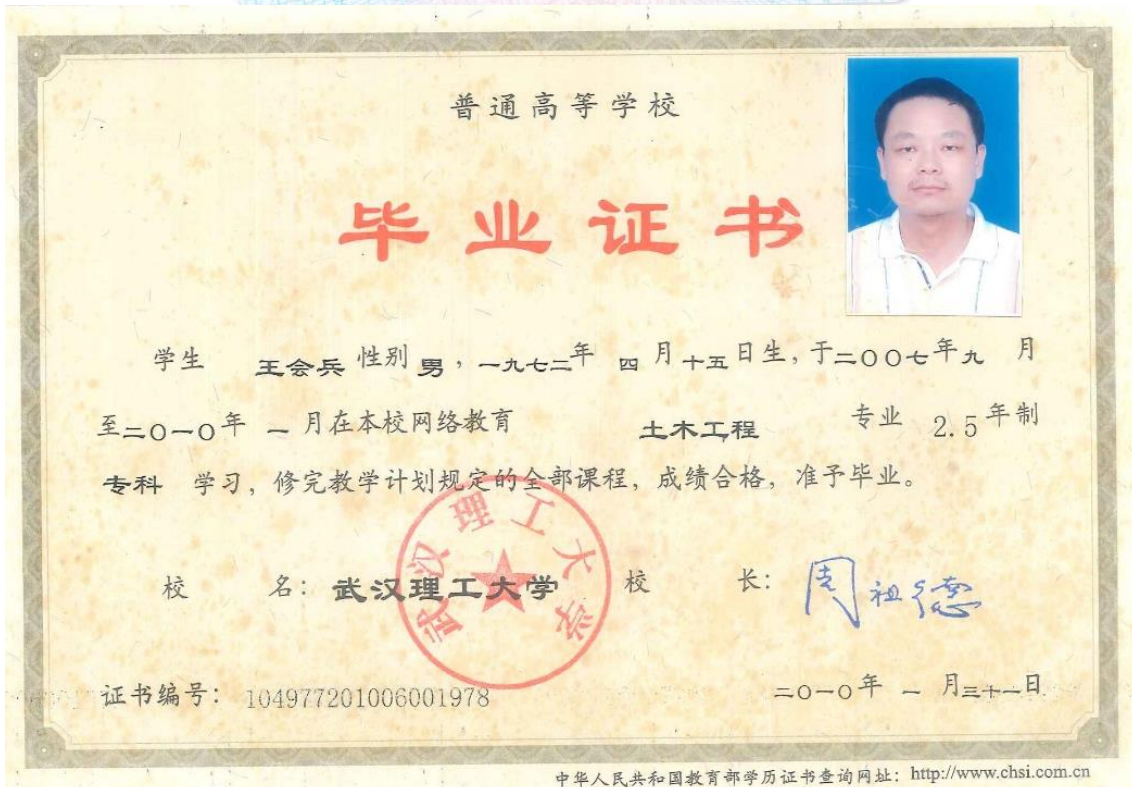 普通高等学校
毕业证书
学生 王会兵 性别 男，一九七二年 四 月 十五 日生，于二〇〇七年九 月
至二〇一〇年 一 月在本校网络教育 土木工程 专业 2.5 年制
专科 学习，修完教学计划规定的全部课程，成绩合格，准予毕业。
校 名：武汉理工大学 校 长：周祖德
武汉理工大学
证书编号：104977201006001978 二〇一〇年 一 月三十一日
中华人民共和国教育部学历证书查询网址：http://www.chsi.com.cn